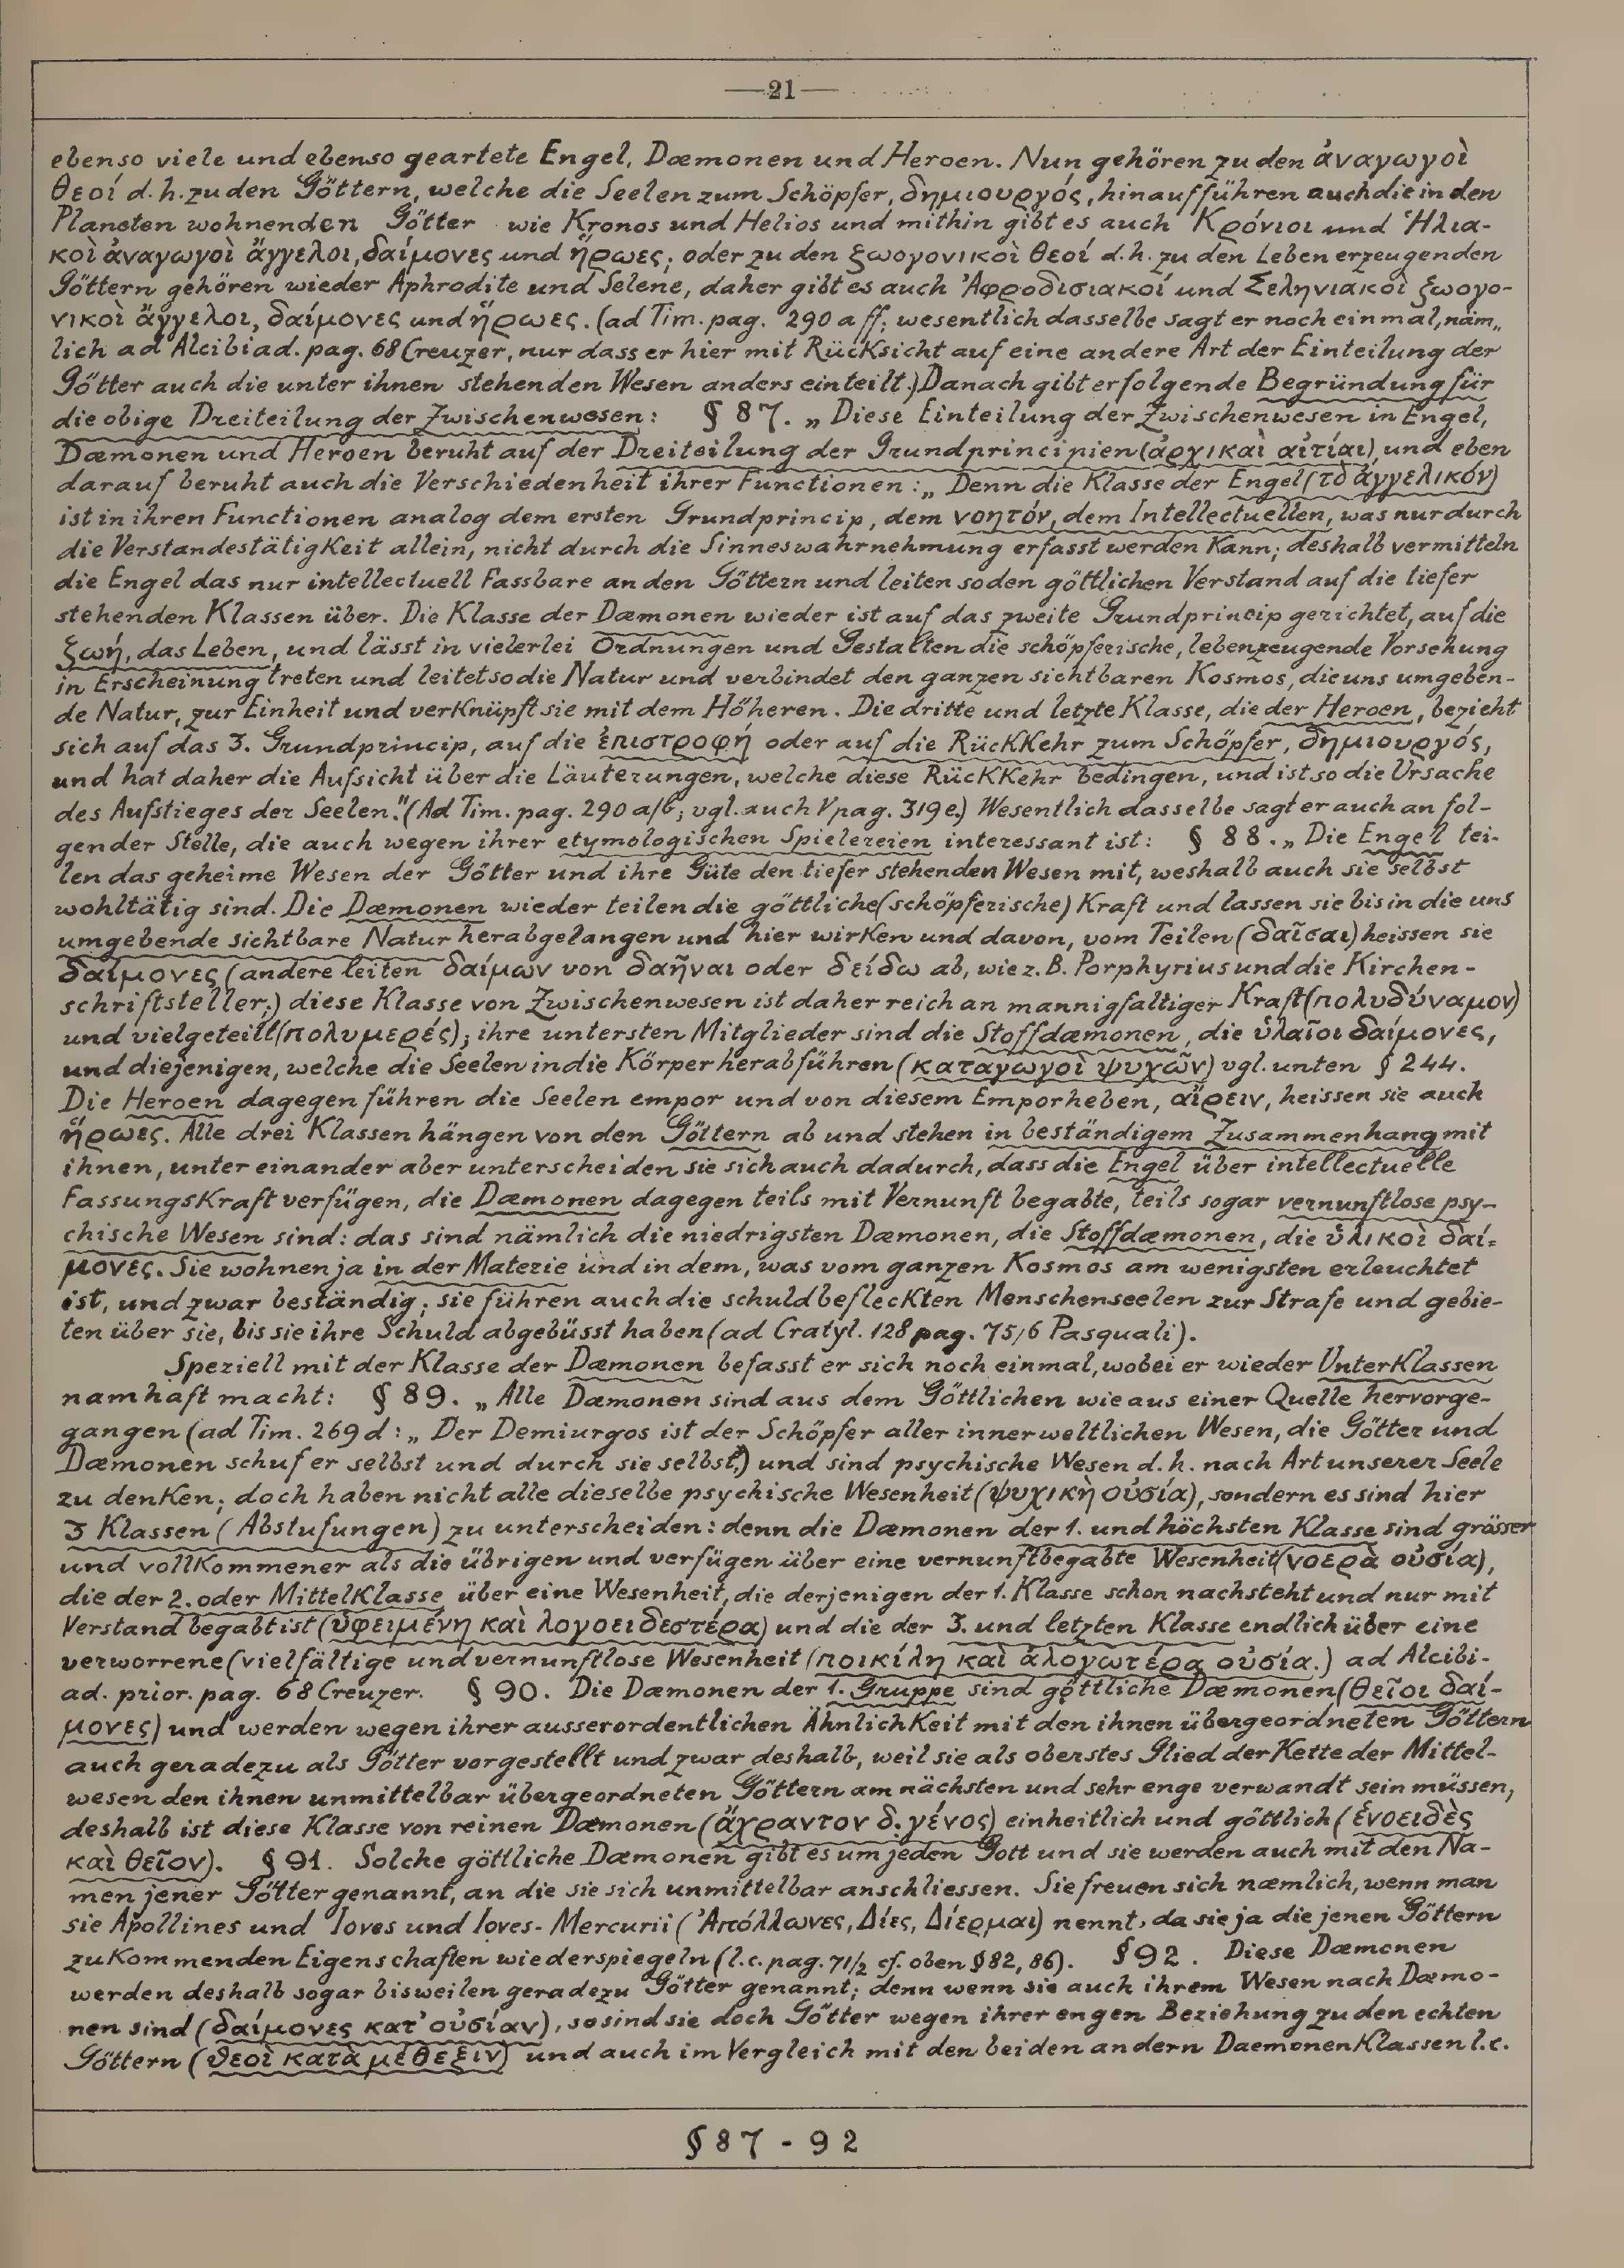 —21—
ebenso viele und ebenso geartete Engel, Dæmonen und Heroen. Nun gehören zu den ἀναγωγοὶ
θεοί d.h. zu den Göttern, welche die Seelen zum Schöpfer, δημιουργός, hinaufführen auch die in den
Planeten wohnenden Götter wie Kronos und Helios und mithin gibt es auch Κρόνιοι und Ἡλια-
κοὶ ἀναγωγοὶ ἄγγελοι, δαίμονες und ἥρωες; oder zu den ζωογονικοὶ θεοί d.h. zu den Leben erzeugenden
Göttern gehören wieder Aphrodite und Selene, daher gibt es auch Ἀφροδισιακοί und Σεληνιακοὶ ζωογο-
νικοὶ ἄγγελοι, δαίμονες und ἥρωες. (ad Tim. pag. 290 a ff; wesentlich dasselbe sagt er noch einmal, näm„
lich ad Alcibiad. pag. 68 Creuzer, nur dass er hier mit Rücksicht auf eine andere Art der Einteilung der
Götter auch die unter ihnen stehenden Wesen anders einteilt.) Danach gibt er folgende Begründung für
die obige Dreiteilung der Zwischenwesen: § 87. „Diese Einteilung der Zwischenwesen in Engel,
Dæmonen und Heroen beruht auf der Dreiteilung der Grundprincipien (ἀρχικαὶ αἰτίαι), und eben
darauf beruht auch die Verschiedenheit ihrer Functionen:„ Denn die Klasse der Engel (τὸ ἀγγελικόν)
ist in ihren Functionen analog dem ersten Grundprincip, dem νοητόν, dem Intellectuellen, was nur durch
die Verstandestätigkeit allein, nicht durch die Sinneswahrnehmung erfasst werden kann; deshalb vermitteln
die Engel das nur intellectuell Fassbare an den Göttern und leiten so den göttlichen Verstand auf die tiefer
stehenden Klassen über. Die Klasse der Dæmonen wieder ist auf das zweite Grundprincip gerichtet, auf die
ζωή, das Leben, und lässt in vielerlei Ordnungen und Gestalten die schöpferische, lebenzeugende Vorsehung
in Erscheinung treten und leitet so die Natur und verbindet den ganzen sichtbaren Kosmos, die uns umgeben-
de Natur, zur Einheit und verknüpft sie mit dem Höheren. Die dritte und letzte Klasse, die der Heroen, bezieht
sich auf das 3. Grundprincip, auf die ἐπιστροφή oder auf die Rückkehr zum Schöpfer, δημιουργός,
und hat daher die Aufsicht über die Läuterungen, welche diese Rückkehr bedingen, und ist so die Ursache
des Aufstieges der Seelen." (Ad Tim. pag. 290 a/b; vgl. auch V pag. 319 e.) Wesentlich dasselbe sagt er auch an fol-
gender Stelle, die auch wegen ihrer etymologischen Spielereien interessant ist: § 88. „Die Engel tei-
len das geheime Wesen der Götter und ihre Güte den tiefer stehenden Wesen mit, weshalb auch sie selbst
wohltätig sind. Die Dæmonen wieder teilen die göttliche (schöpferische) Kraft und lassen sie bis in die uns
umgebende sichtbare Natur herabgelangen und hier wirken und davon, vom Teilen (δαῖσαι) heissen sie
δαίμονες (andere leiten δαίμων von δαῆναι oder δείδω ab, wie z.B. Porphyrius und die Kirchen-
schriftsteller;) diese Klasse von Zwischenwesen ist daher reich an mannigfaltiger Kraft (πολυδύναμον)
und vielgeteilt (πολυμερές); ihre untersten Mitglieder sind die Stoffdæmonen, die ὑλαῖοι δαίμονες,
und diejenigen, welche die Seelen in die Körper herabführen (καταγωγοὶ ψυχῶν) vgl. unten § 244.
Die Heroen dagegen führen die Seelen empor und von diesem Emporheben, αἴρειν, heissen sie auch
ἥρωες. Alle drei Klassen hängen von den Göttern ab und stehen in beständigem Zusammenhang mit
ihnen, unter einander aber unterscheiden sie sich auch dadurch, dass die Engel über intellectuelle
Fassungskraft verfügen, die Dæmonen dagegen teils mit Vernunft begabte, teils sogar vernunftlose psy-
chische Wesen sind: das sind nämlich die niedrigsten Dæmonen, die Stoffdæmonen, die ὑλικοὶ δαί-
μονες. Sie wohnen ja in der Materie und in dem, was vom ganzen Kosmos am wenigsten erleuchtet
ist, und zwar beständig; sie führen auch die schuldbefleckten Menschenseelen zur Strafe und gebie-
ten über sie, bis sie ihre Schuld abgebüsst haben (ad Cratyl. 128 pag. 75/6 Pasquali).
Speziell mit der Klasse der Dæmonen befasst er sich noch einmal, wobei er wieder Unterklassen
namhaft macht: § 89. „Alle Dæmonen sind aus dem Göttlichen wie aus einer Quelle hervorge-
gangen (ad Tim. 269 d: „Der Demiurgos ist der Schöpfer aller innerweltlichen Wesen, die Götter und
Dæmonen schuf er selbst und durch sie selbst;) und sind psychische Wesen d.h. nach Art unserer Seele
zu denken; doch haben nicht alle dieselbe psychische Wesenheit (ψυχικὴ οὐσία), sondern es sind hier
3 Klassen (Abstufungen) zu unterscheiden: denn die Dæmonen der 1. und höchsten Klasse sind grösser
und vollkommener als die übrigen und verfügen über eine vernunftbegabte Wesenheit (νοερὰ οὐσία),
die der 2. oder Mittelklasse über eine Wesenheit, die derjenigen der 1. Klasse schon nachsteht und nur mit
Verstand begabt ist (ὑφειμένη καὶ λογοειδεστέρα) und die der 3. und letzten Klasse endlich über eine
verworrene (vielfältige und vernunftlose Wesenheit (ποικίλη καὶ ἀλογωτέρα οὐσία.) ad Alcibi-
ad. prior. pag. 68 Creuzer. § 90. Die Dæmonen der 1. Gruppe sind göttliche Dæmonen (θεῖοι δαί-
μονες) und werden wegen ihrer ausserordentlichen Ähnlichkeit mit den ihnen übergeordneten Göttern
auch geradezu als Götter vorgestellt und zwar deshalb, weil sie als oberstes Glied der Kette der Mittel-
wesen den ihnen unmittelbar übergeordneten Göttern am nächsten und sehr enge verwandt sein müssen,
deshalb ist diese Klasse von reinen Dæmonen (ἄχραντον δ. γένος) einheitlich und göttlich (ἑνοειδὲς
καὶ θεῖον). § 91. Solche göttliche Dæmonen gibt es um jeden Gott und sie werden auch mit den Na-
men jener Götter genannt, an die sie sich unmittelbar anschliessen. Sie freuen sich næmlich, wenn man
sie Apollines und Ioves und Ioves-Mercurii (Ἀπόλλωνες, Δίες, Δίερμαι) nennt, da sie ja die jenen Göttern
zukommenden Eigenschaften wiederspiegeln (l.c. pag. 71/2 cf. oben § 82, 86). § 92. Diese Dæmonen
werden deshalb sogar bisweilen geradezu Götter genannt; denn wenn sie auch ihrem Wesen nach Dæmo-
nen sind (δαίμονες κατ' οὐσίαν), so sind sie doch Götter wegen ihrer engen Beziehung zu den echten
Göttern (θεοὶ κατὰ μέθεξιν) und auch im Vergleich mit den beiden andern Daemonenklassen l.c.
§ 87 - 92